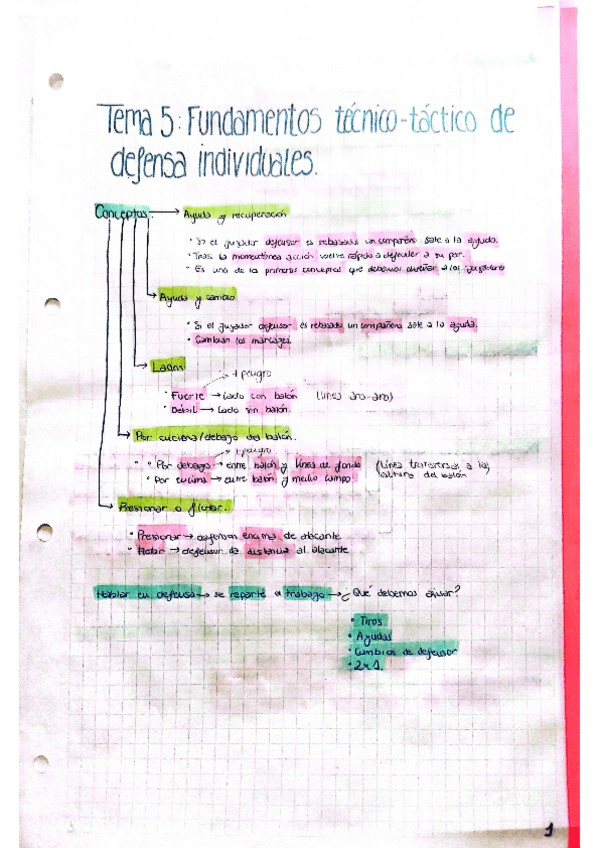 Tema 5: Fundamentos técnico-táctico de
defensa individuales.
Conceptos → Ayuda y recuperación
• Si el jugador defensor es rebasado un compañero sale a la ayuda.
• Tras la momentánea acción vuelve rápido a defender a su par.
• Es uno de los primeros conceptos que debemos enseñar a los jugadores
Ayuda y cambio
• Si el jugador defensor es rebasado un compañero sale a la ayuda.
• Cambian los marcajes.
Lados
+ peligro
• Fuerte → lado con balón (línea aro-aro)
• Débil → lado sin balón.
Por encima/debajo del balón.
+ peligro
• Por debajo → entre balón y línea de fondo (línea transversal a la
• Por encima → entre balón y medio campo altura del balón
Presionar o flotar.
• Presionar → defensor encima de atacante
• Flotar → defensor da distancia al atacante
Hablar en defensa → se reparte el trabajo → ¿Qué debemos avisar?
• Tiros
• Ayudas
• Cambios de defensor
• 2x1.
1